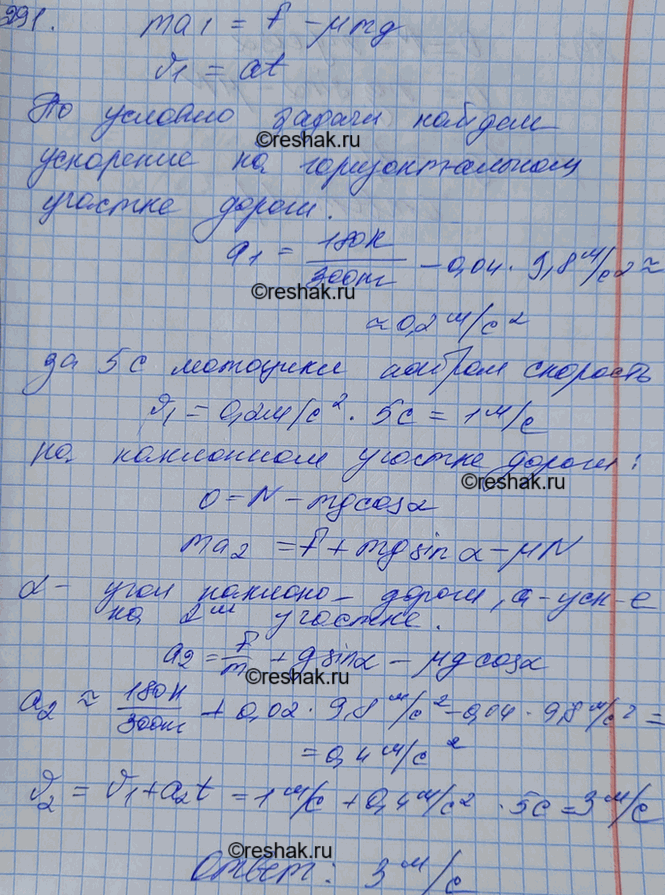 291. ma₁ = F - μmg
υ₁ = at
По условию задачи найдем
©reshak.ru
ускорение на горизонтальном
участке дороги.
a₁ = 180Н/300кг - 0,04 · 9,8 м/с² ≈
©reshak.ru
≈ 0,2 м/с²
за 5с мотоцикл набрал скорость
υ₁ = 0,2м/с² · 5с = 1 м/с
на наклонном участке дороги:
©reshak.ru
0 = N - mg cosα
ma₂ = F + mg sin α - μN
α - угол наклона дороги, a - уск-е
на 2ом участке.
a₂ = F/m + g sinα - μg cosα
a₂ ≈ 180Н/300кг + 0,02 · 9,8 м/с² - 0,04 · 9,8 м/с² =
= 0,4 м/с²
υ₂ = υ₁ + a₂t = 1 м/с + 0,4 м/с² · 5с = 3 м/с
©reshak.ru
Ответ: 3 м/с